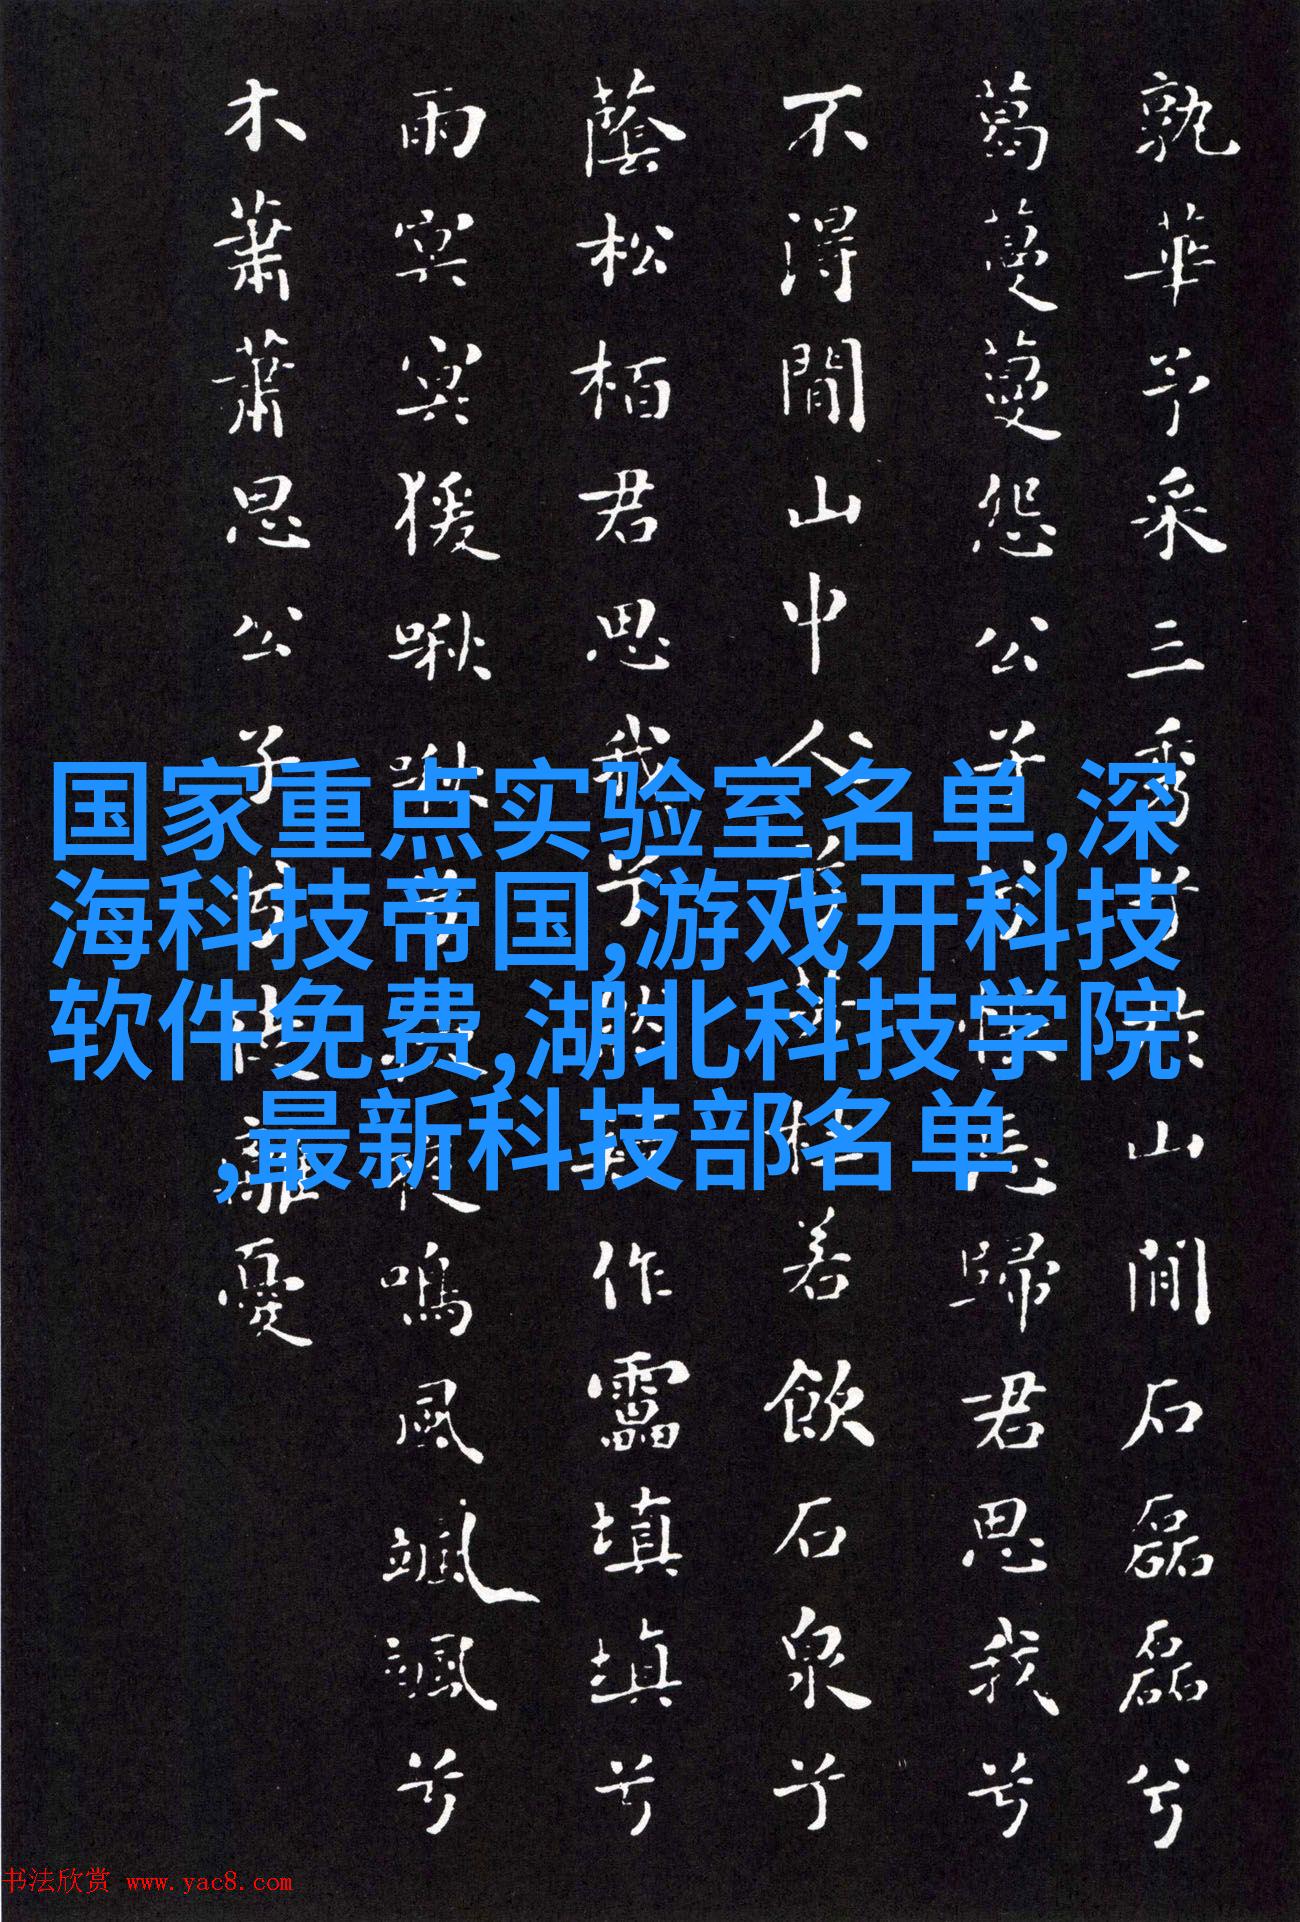 孰華予采三秀兮於山間石磊磊兮
葛蔓蔓怨公子兮悵忘歸君思我兮
不得間山中人兮芳杜若飲石泉兮
蔭松栢君思我兮然疑作靁填填兮
雨冥冥猨啾啾兮夜鳴風颯颯兮
木蕭蕭思公子兮徒離憂
国家重点实验室名单,深
海科技帝国,游戏开科技
软件免费,湖北科技学院
,最新科技部名单
书法欣赏 www.yac8.com